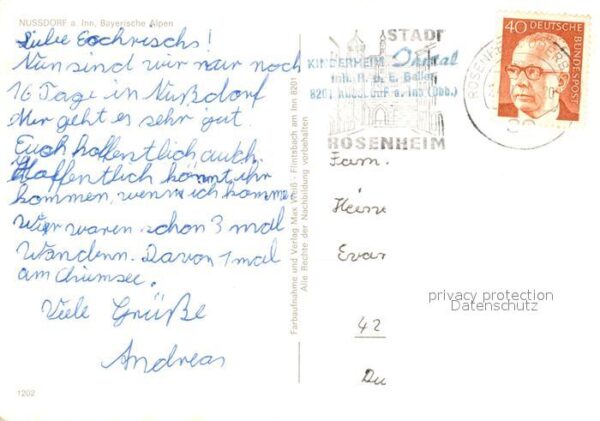 NUSSDORF a. Inn, Bayerische Alpen
Liebe Eochrischs!
Nun sind wir nur noch
16 Tage in Nußdorf
Mir geht es sehr gut.
Euch hoffentlich auch.
Hoffentlich könnt ihr
kommen, wenn ich komme
Wir waren schon 3 mal
Wandern. Davon 1 mal
am Chiemsee.
Viele Grüße
Andreas
1202
Farbaufnahme und Verlag Max Weiß · Flintsbach am Inn 8201
Alle Rechte der Nachbildung vorbehalten
STADT
ROSENHEIM
KINDERHEIM
Inh. R. u. E.
8201 Nussdorf a. Inn (Obb.)
ROSENHEIM
40 DEUTSCHE
BUNDESPOST
Fam.
Heinz
Evar
42
Du
privacy protection
Datenschutz